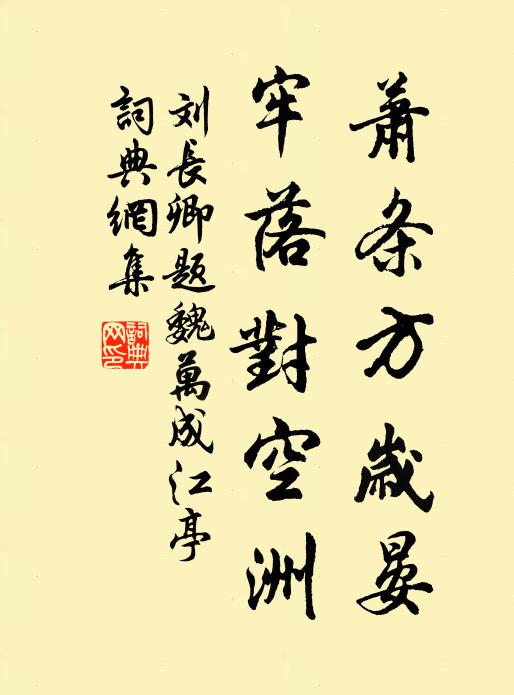 蕭条方歲晏
牢落對空洲
刘長卿題魏萬成江亭
詞典網集
詞典网印